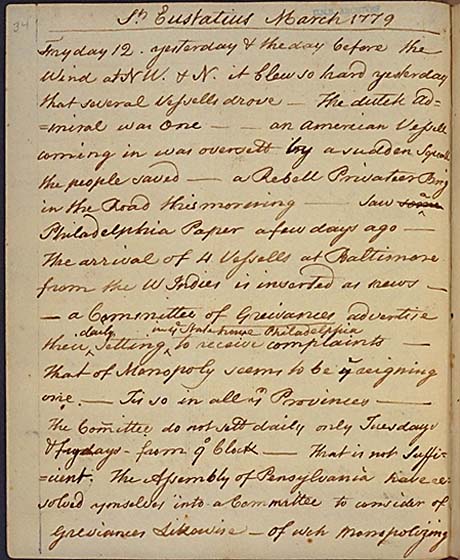 34
St Eustatius March 1779
Fryday 12. yesterday & the day before the
Wind at NW. & N. it blew so hard yesterday
that several Vessells drove — The dutch Ad-
=miral was one — — an American Vessell
coming in was oversett by a sudden Squall
the people saved — a Rebell Privateer Brig
in the Road this morening — Saw some a
Philadelphia Paper a few days ago —
The arrival of 4 Vessells at Baltimore
from the W Indies is inserted as news —
— a Committee of Greivances advertise
daily in ye State house Philadelphia
their setting to receive complaints —
that of Monopoly seems to be ye reigning
one. — Tis so in all ye Provinces —
The Comittee do not sett daily only Tuesdays
& frydays - from 9 oClock — That is not Suffi-
=cient. The Assembly of Pensylvania have re-
solved ymselves into a Committee to consider of
Greviances Likewise — of wch Monopolizing